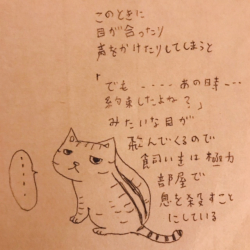 このときに
目が合ったり
声をかけたりしてしまうと
「でも・・・・あの時・・・
約束したよね?」
みたいな目が
飛んでくるので
飼い主は極力
部屋で
息を殺すこと
にしている
・・・・・